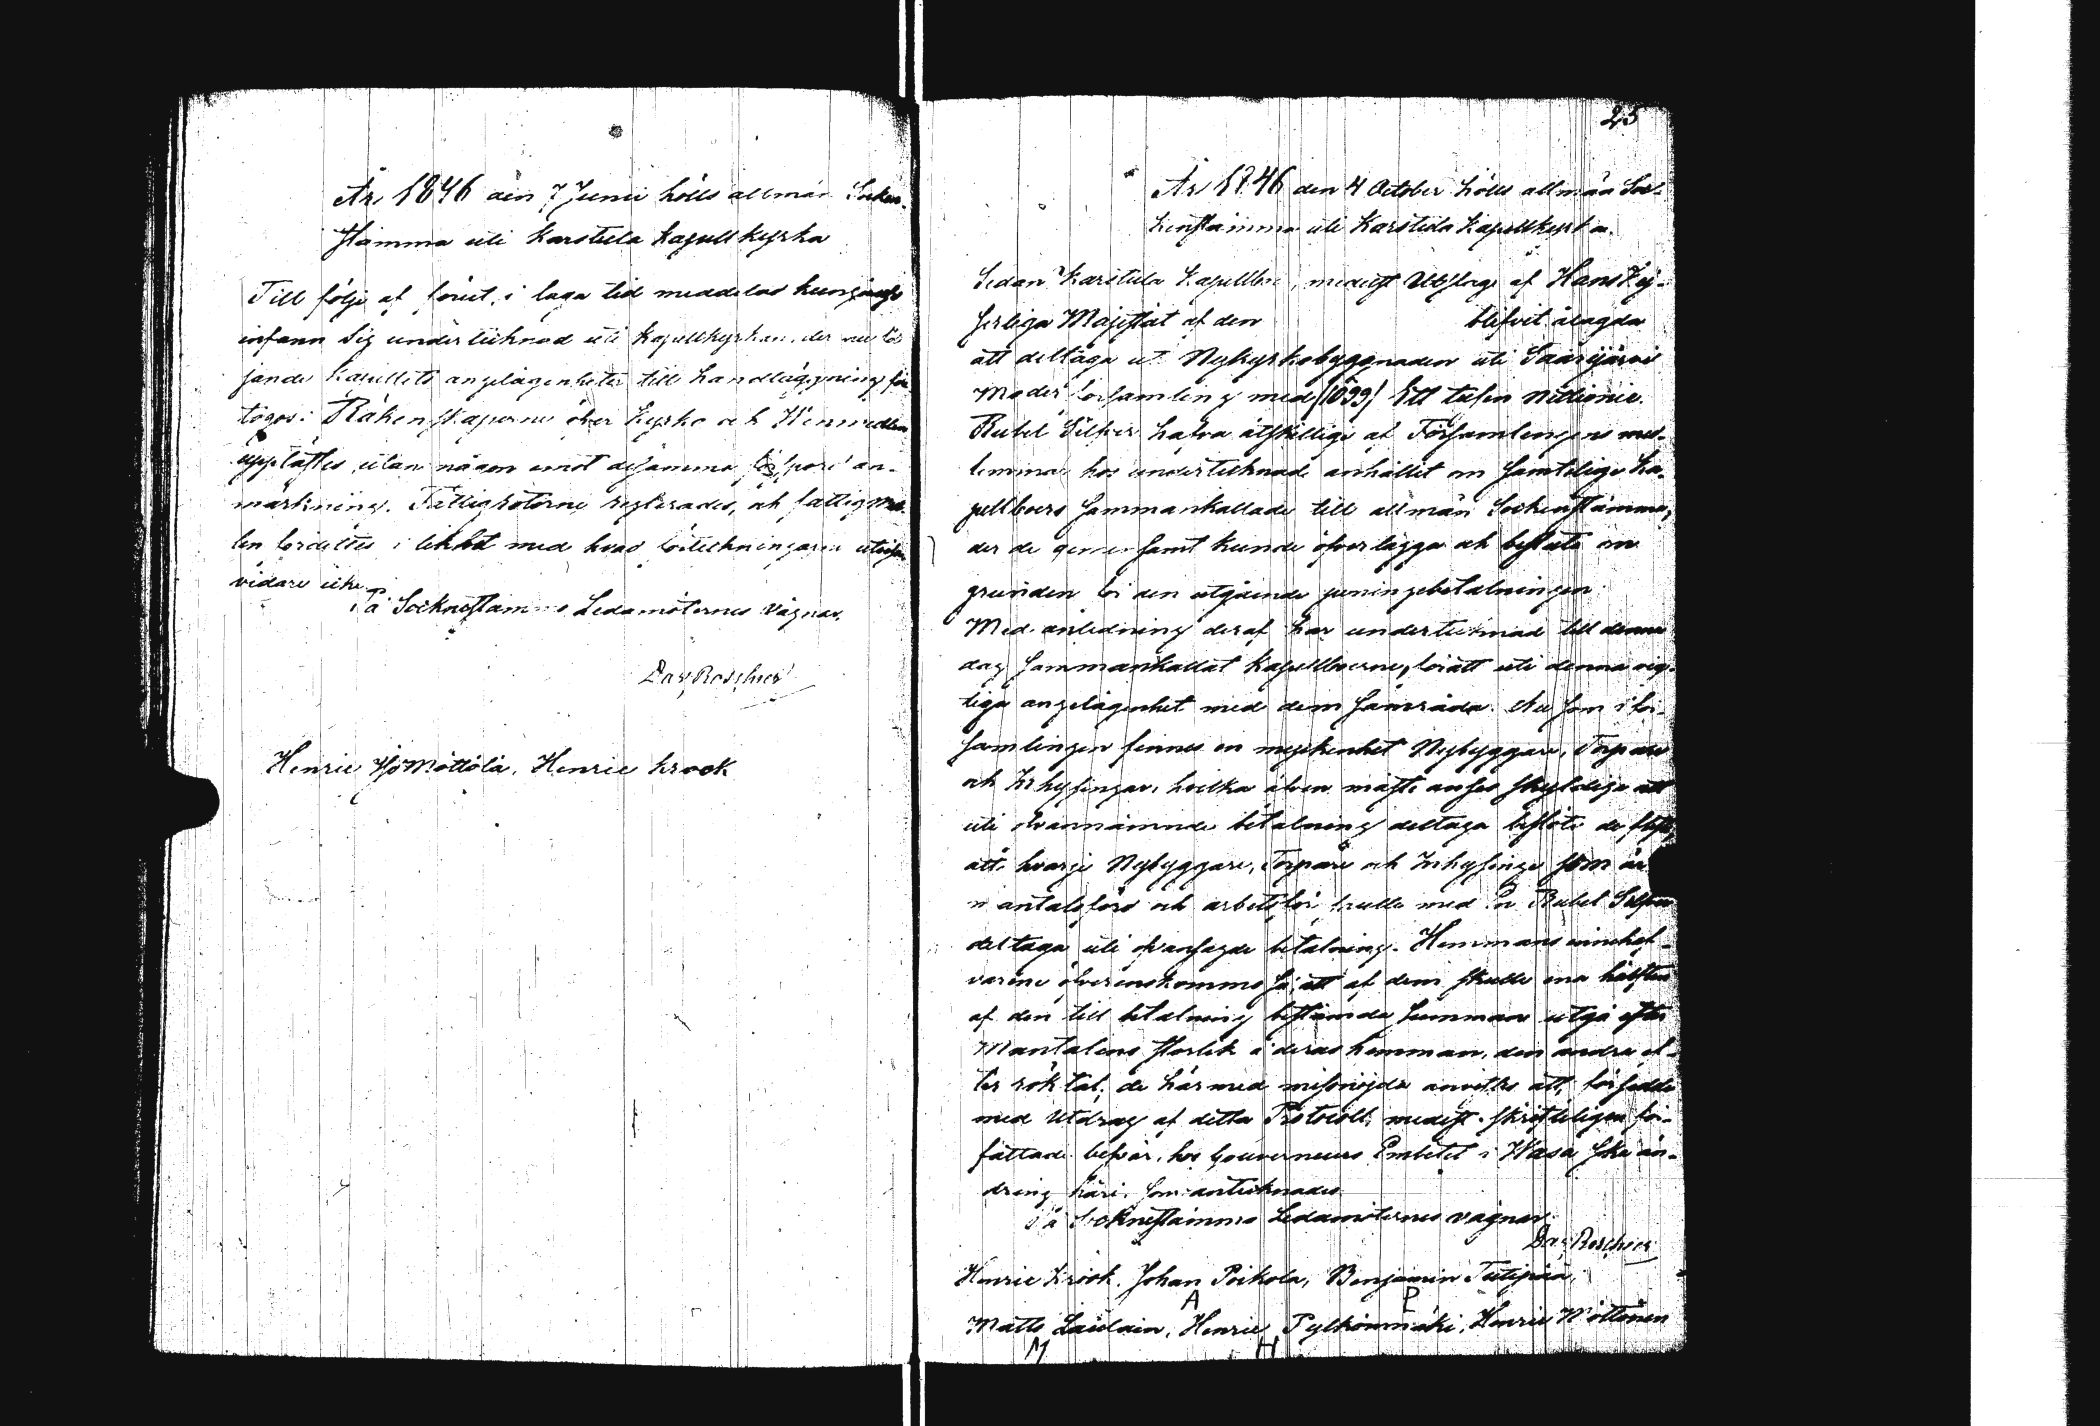 År 1846 den 7 Junii hölls allmän Socken-
stämma uti Karstula kapellkyrka
Till följe af förut, i laga tid meddelad kungörelse
infann sig undertecknad uti kapellkyrkan, der nu föl-
jande kapellets angelägenheter till handläggning före
togos: Räkenskaperne öfver Kyrko och Vinmedlen
upplästes, utan någon emot desamma försport an-
märkning. Fattigrotorne reglerades, och fattigme-
len fördeltes i likhet med hvad förteckningarne utvisa
vidare icke
På Sockenstämmo Ledamöternes vägnar,
Dav. Roschier
Henric Yſö Möttölä, Henric Krook
25
År 1846 den 4 October hölls allmän Soc-
kenstämma uti Karstula Kapellkyrka.
Sedan Karstula Kapellboer, medelst Utslag af Hans Kej-
serliga Majestät af den blifvit ålagda
att deltaga uti Nykyrkobyggnaden uti Saarijärvi
Moder församling med (1099) Ett tusen nittionie
Rubel Silfver hafva åtskillige af Församlingens med-
lemmar hos undertecknad anhållit om samtelige Ka-
pellboers sammankallade till allmän Sockenstämma,
der de gemensamt kunde öfverlägga och besluta om
grunden för den utgående peningebetalningen.
Med anledning deraf har undertecknad till denna
dag sammankallat kapellboerne, för att uti denna vig-
tiga angelägenhet med dem samråda. Nu som i för-
samlingen finnes en myckenhet Nybyggare, Torpare
och Inhysingar, hvilka äfven måste anses skyldiga att
uti ofvannämnde betalning deltaga beslöts de flesta
att hvarje Nybyggare, Torpare och Inhysinge som är
mantalsförd och arbetsför skulle med En Rubel Silfver
deltaga uti ofvansagde betalning. Hemmans innehaf-
varene öfverenskommo så, att af dem skulle ena hälften
af den till betalning bestämde summan utgå efter
Mantalens storlek å deras hemman, den andra ef-
ter röktal; de härmed missnöjda anvistes att, försedde
med Utdrag af detta Protocoll, medelst skrifteligen för-
fattade besvär, hos Gouverneurs Embetet i Wasa söka än-
dring häri. som antecknades
På Sockenstämmo Ledamöternes vägnar
Dav. Roschier
Henric Krook, Johan Poikola, Benjamin Tutipää,
A P
Matts Laulain, Henric Pylkönmäki, Henric Möttönen
M H